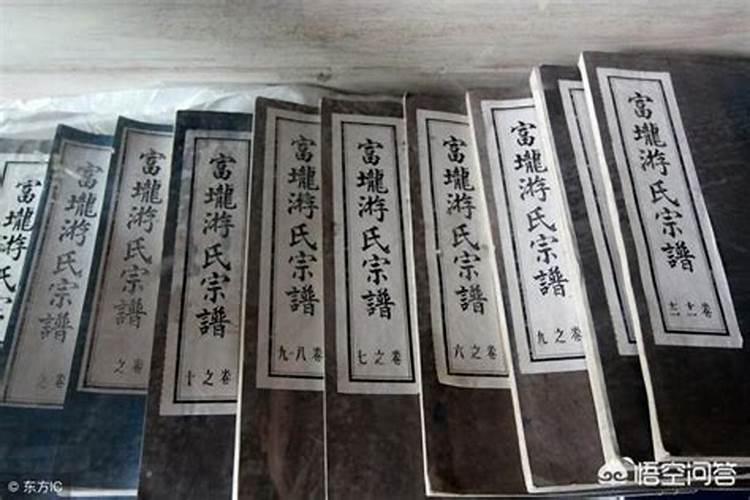 富壠游氏宗
富壠游氏宗譜
卷之
富壠游氏宗譜
卷之
富壠游氏宗譜
卷之十
富壠游氏宗譜
卷八-九
富壠游氏宗譜
卷之七
富壠游氏宗譜
卷之六
富壠游氏宗譜
卷之九
富壠游氏宗譜
卷
© 东方IC
悟空问答